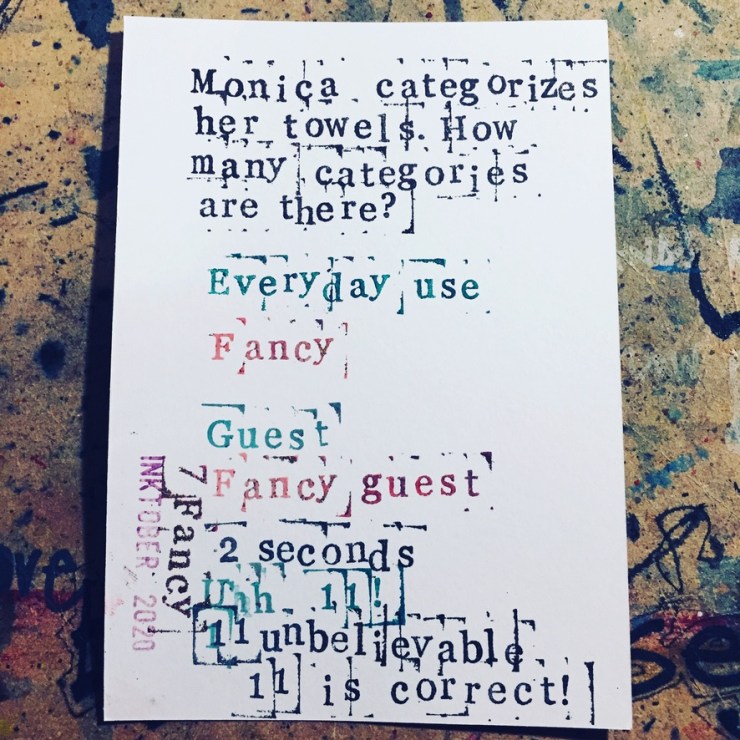 Monica categorizes
her towels. How
many categories
are there?
Everyday use
Fancy
Guest
Fancy guest
2 seconds
Uhh 11!
11 unbelievable
11 is correct!
7 Fancy
INKTOBER 2020